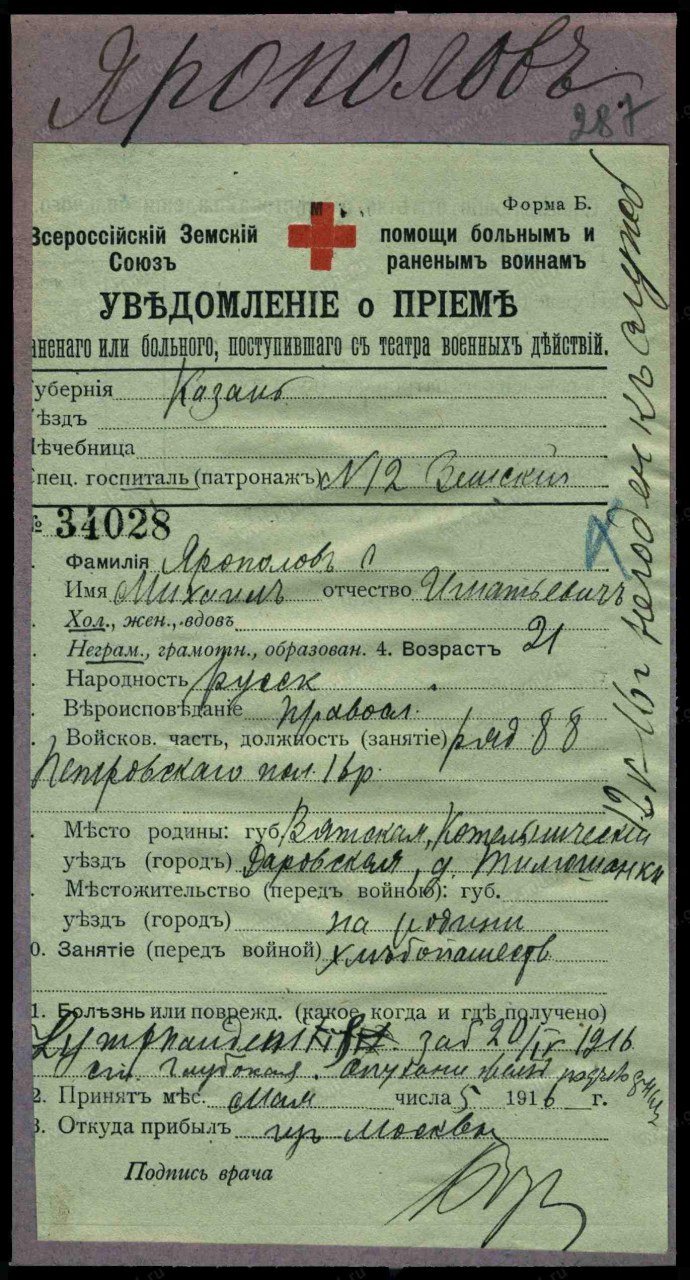 Ярополовъ
287
Форма Б.
Всероссійскій Земскій помощи больнымъ и
Союзъ раненымъ воинамъ
УВѢДОМЛЕНІЕ о ПРІЕМѢ
аненаго или больного, поступившаго съ театра военныхъ дѣйствій.
убернія Казань
ѣздъ
ѣчебница
пец. госпиталь (патронажъ) N12 Земскій
№ 34028
Фамилія Ярополовъ
Имя Михаилъ отчество Игнатьевичъ
Хол., жен., вдовъ
Неграм., грамотн., образован. 4. Возрастъ 21
Народность русск
Вѣроисповѣданіе правосл.
Войсков. часть, должность (занятіе) ряд 88
Петровскаго пол. 1 бр.
Мѣсто родины: губ. Вятская, Котельническій
уѣздъ (городъ) Даровская, д.
Мѣстожительство (передъ войною): губ.
уѣздъ (городъ) на родини
0. Занятіе (передъ войной) хлѣбопашеств
1. Болѣзнь или поврежд. (какое, когда и гдѣ получено)
заб 20/IV 1916
ст. Глубокая.
2. Принятъ мѣс. Мая числа 5 1916 г.
3. Откуда прибылъ изъ Москвы
Подпись врача
негоденъ къ служб